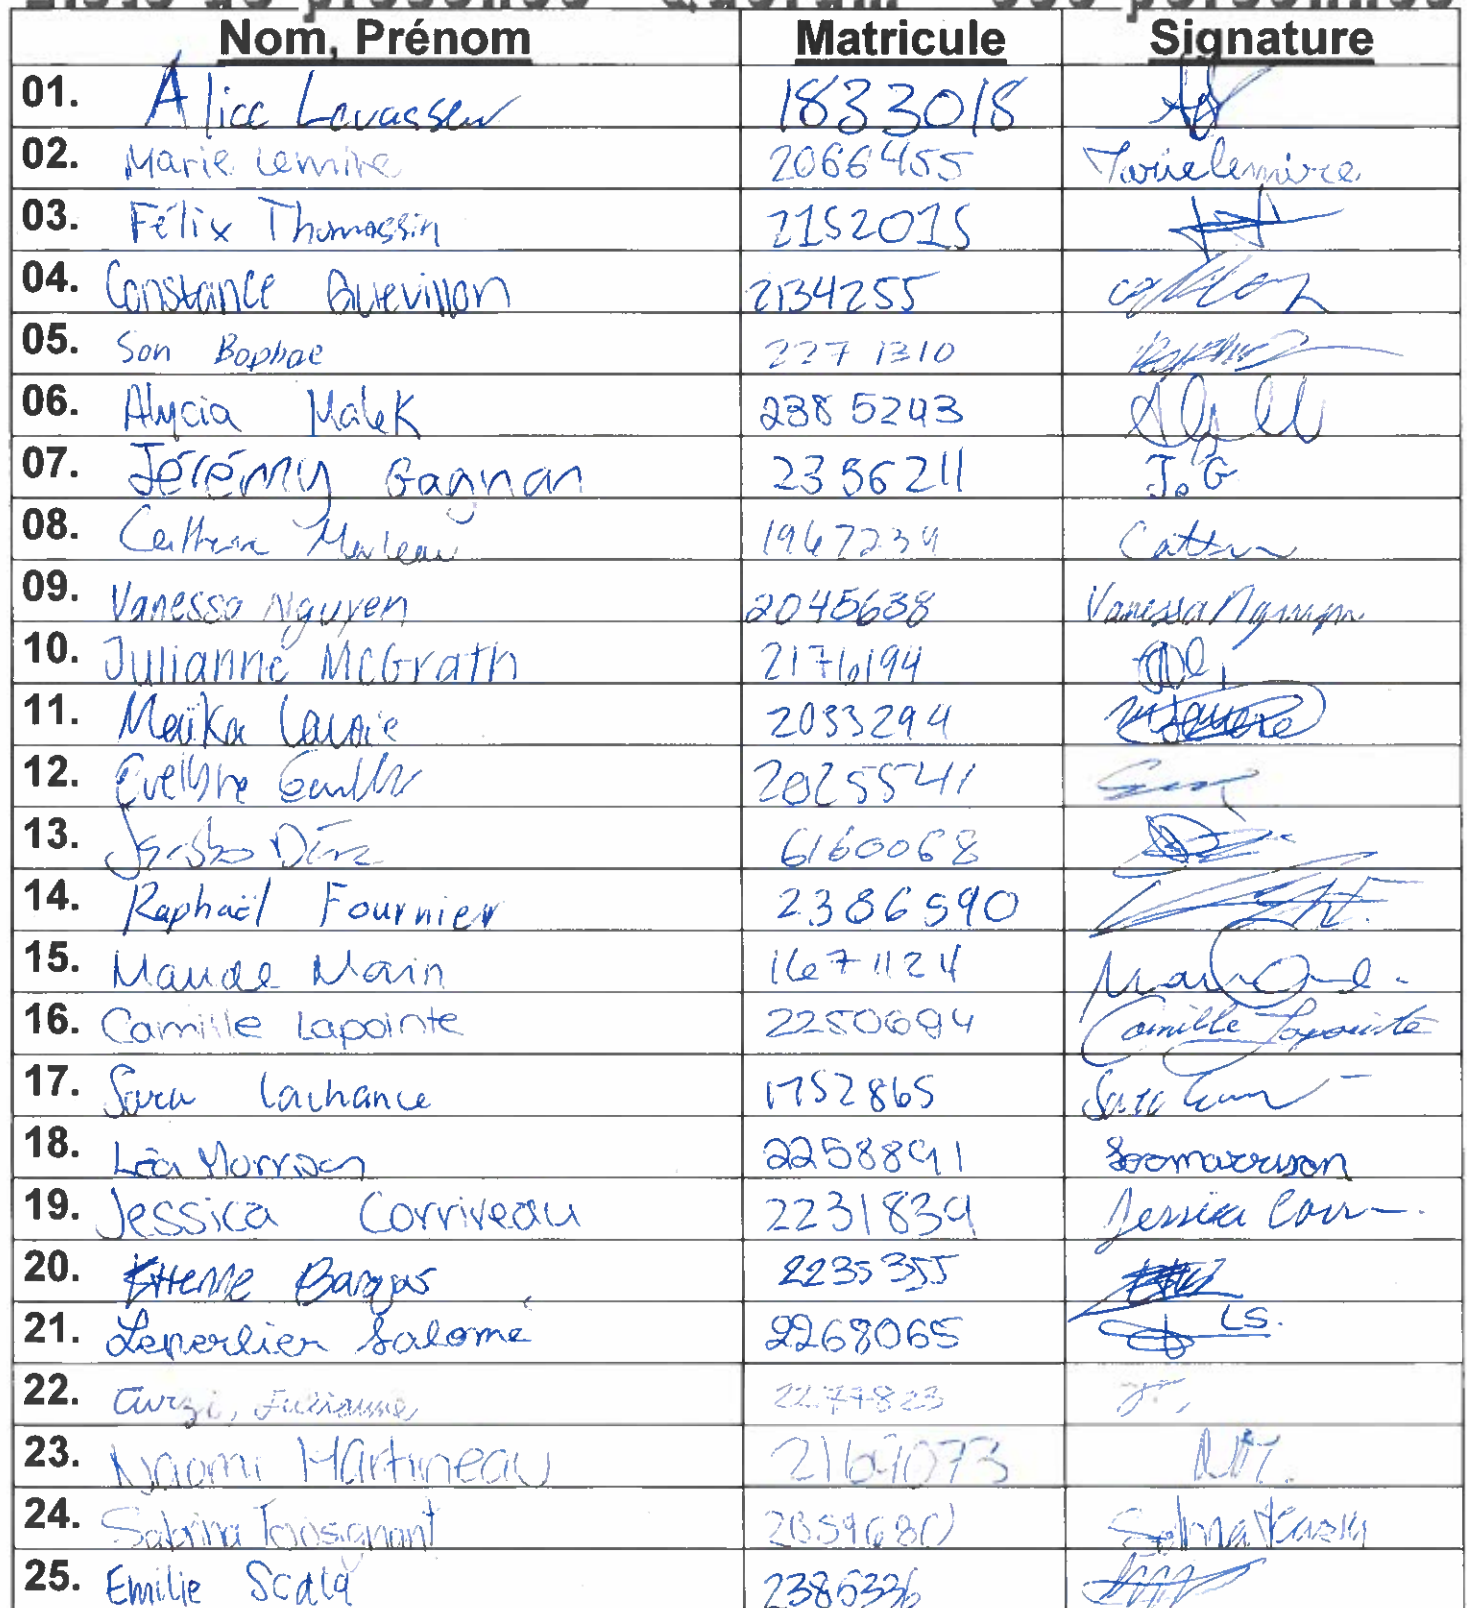 Liste de présence - Quorum - 030 personnes
Nom, Prénom Matricule Signature
01. Alice Levasseur 1833018
02. Marie Lemire 2066455 Marie Lemire
03. Félix Thomassin 2152015
04. Constance Quevillon 2134255
05. Son Bophae 2271310
06. Alycia Malek 2385243
07. Jérémy Gagnan 2396211 J.G
08. Catherine Marleau 1967239
09. Vanessa Nguyen 2045638 Vanessa Nguyen
10. Julianne McGrath 2176194
11. Maïka Lavoie 2033294
12. Evelyne 2025541
13. Díaz 6160068
14. Raphaël Fournier 2386590
15. Maude Morin 1671124
16. Camille Lapointe 2250694 Camille Lapointe
17. Sara Lachance 1752865 Sara
18. Léa Morrison 2258891 Léa morrison
19. Jessica Corriveau 2231839 Jessica Corr
20. Étienne 2235355
21. Leperlier Salomé 2268065 LS.
22. Curzi, Julianne 2277823
23. Naomi Martineau 2169073 N.M.
24. Sabrina Tousignant 2359680
25. Emilie Scala 2385336